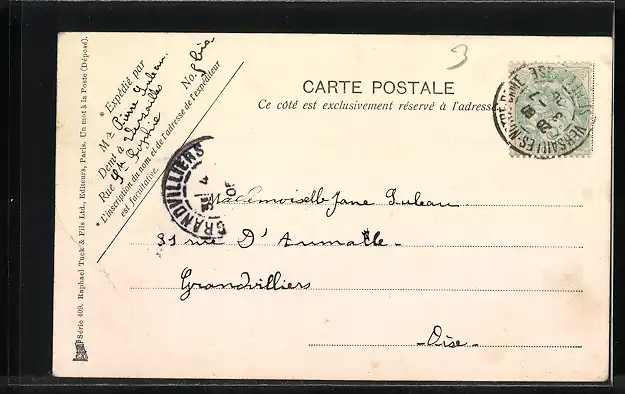 3
CARTE POSTALE
Ce côté est exclusivement réservé à l'adresse
* Expédié par
Mr Pierre Juleau.
Demt à Versailles
Rue Ste Sophie
No.
* L'inscription du nom et de l'adresse de l'expéditeur
est facultative.
GRANDVILLIERS
4
Mademoiselle Jane Juleau
31 rue D'Aumale
Grandvilliers
Oise
Série 409. Raphael Tuck & Fils Ltd., Editeurs, Paris. Un mot à la Poste (Déposé).
VERSAILLES